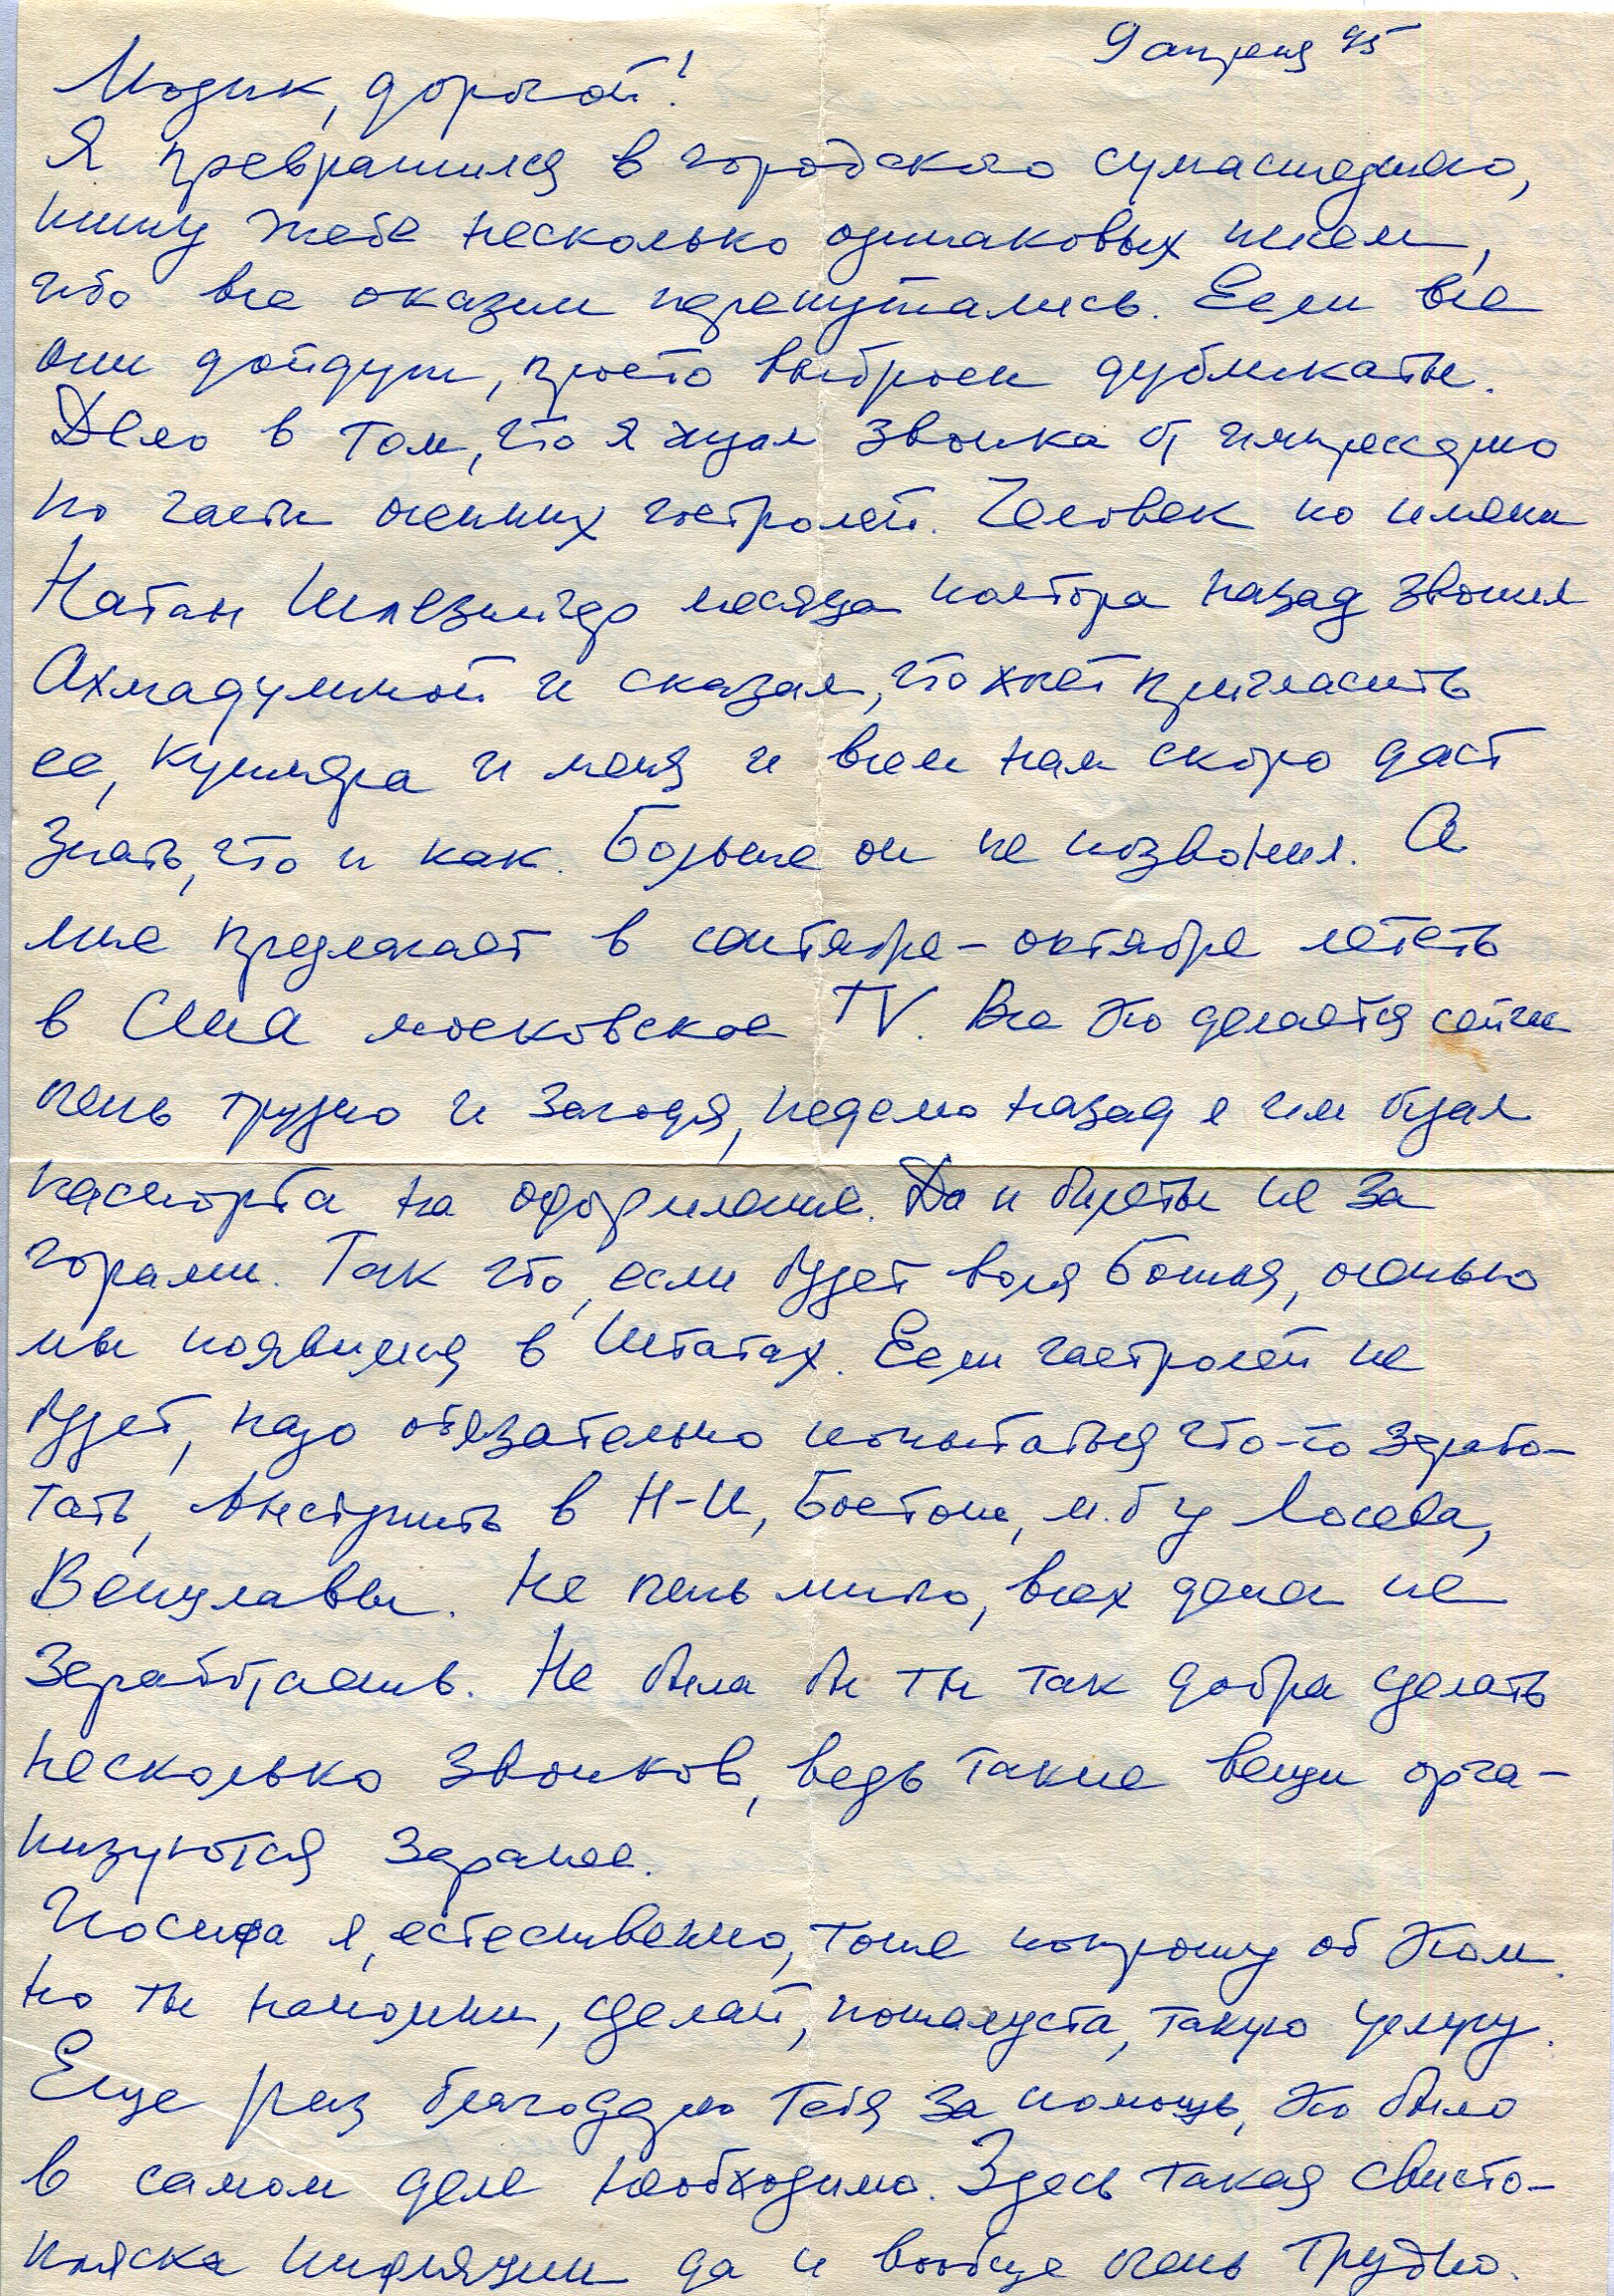 9 апреля 95
Людик, дорогой!
Я превратился в городского сумасшедшего,
пишу тебе несколько одинаковых писем,
ибо все оказии перепутались. Если все
они дойдут, просто выброси дубликаты.
Дело в том, что я ждал звонка от импресарио
по части осенних гастролей. Человек по имени
Натан Шлезингер месяца полтора назад звонил
Ахмадулиной и сказал, что хочет пригласить
ее, Кушнера и меня и всем нам скоро даст
знать, что и как. Больше он не позвонил. А
мне предлагает в сентябре-октябре лететь
в США московское TV. Все это делается сейчас
очень трудно и загодя, неделю назад я им отдал
паспорта на оформление. Да и билеты не за
горами. Так что, если будет воля Божья, осенью
мы появимся в Штатах. Если гастролей не
будет, надо обязательно попытаться что-то зарабо-
тать, выступить в Н-Й, Бостоне, м.б у Лосева,
Венцловы. Не очень много, всех денег не
заработаешь. Не была бы ты так добра сделать
несколько звонков, ведь такие вещи орга-
низуются заранее.
Иосифа я, естественно, тоже попрошу об этом.
Но ты напомни, сделай, пожалуйста, такую услугу.
Еще раз благодарю тебя за помощь, это было
в самом деле необходимо. Здесь такая свисто-
пляска инфляции да и вообще очень трудно.